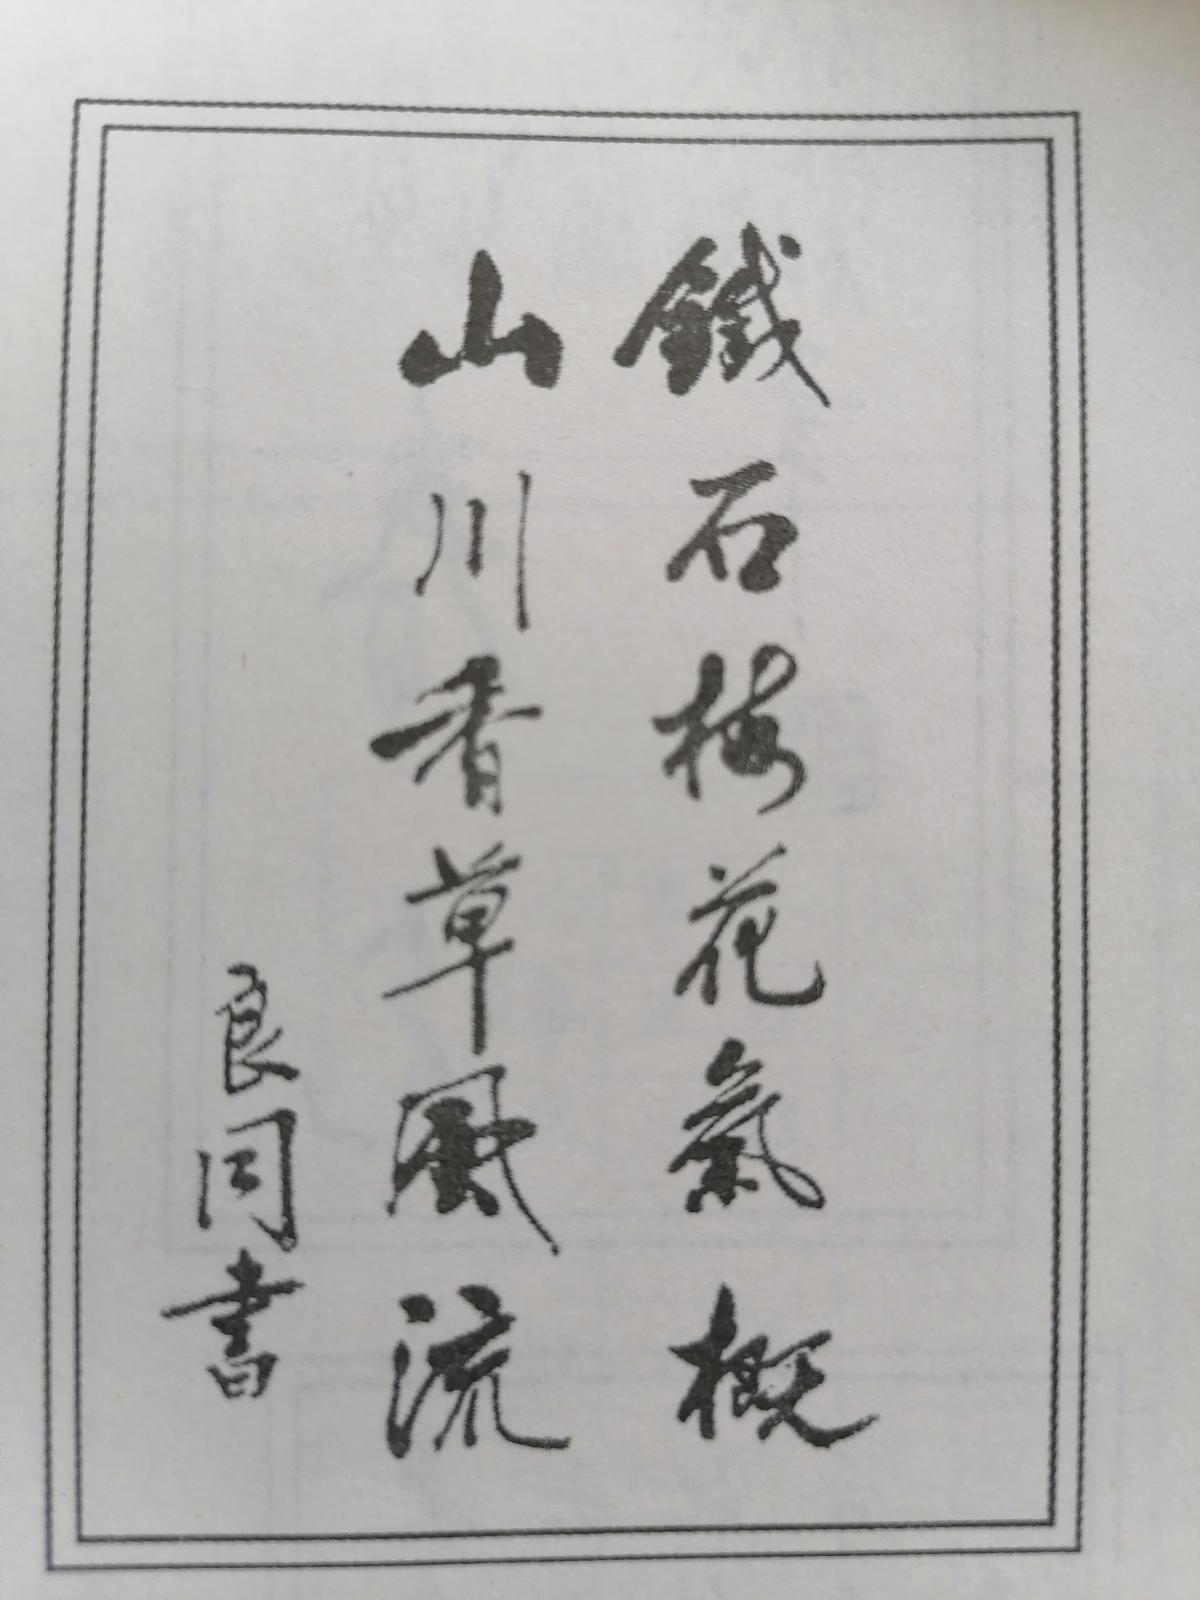 鐵石梅花氣概
山川香草風流
良同書